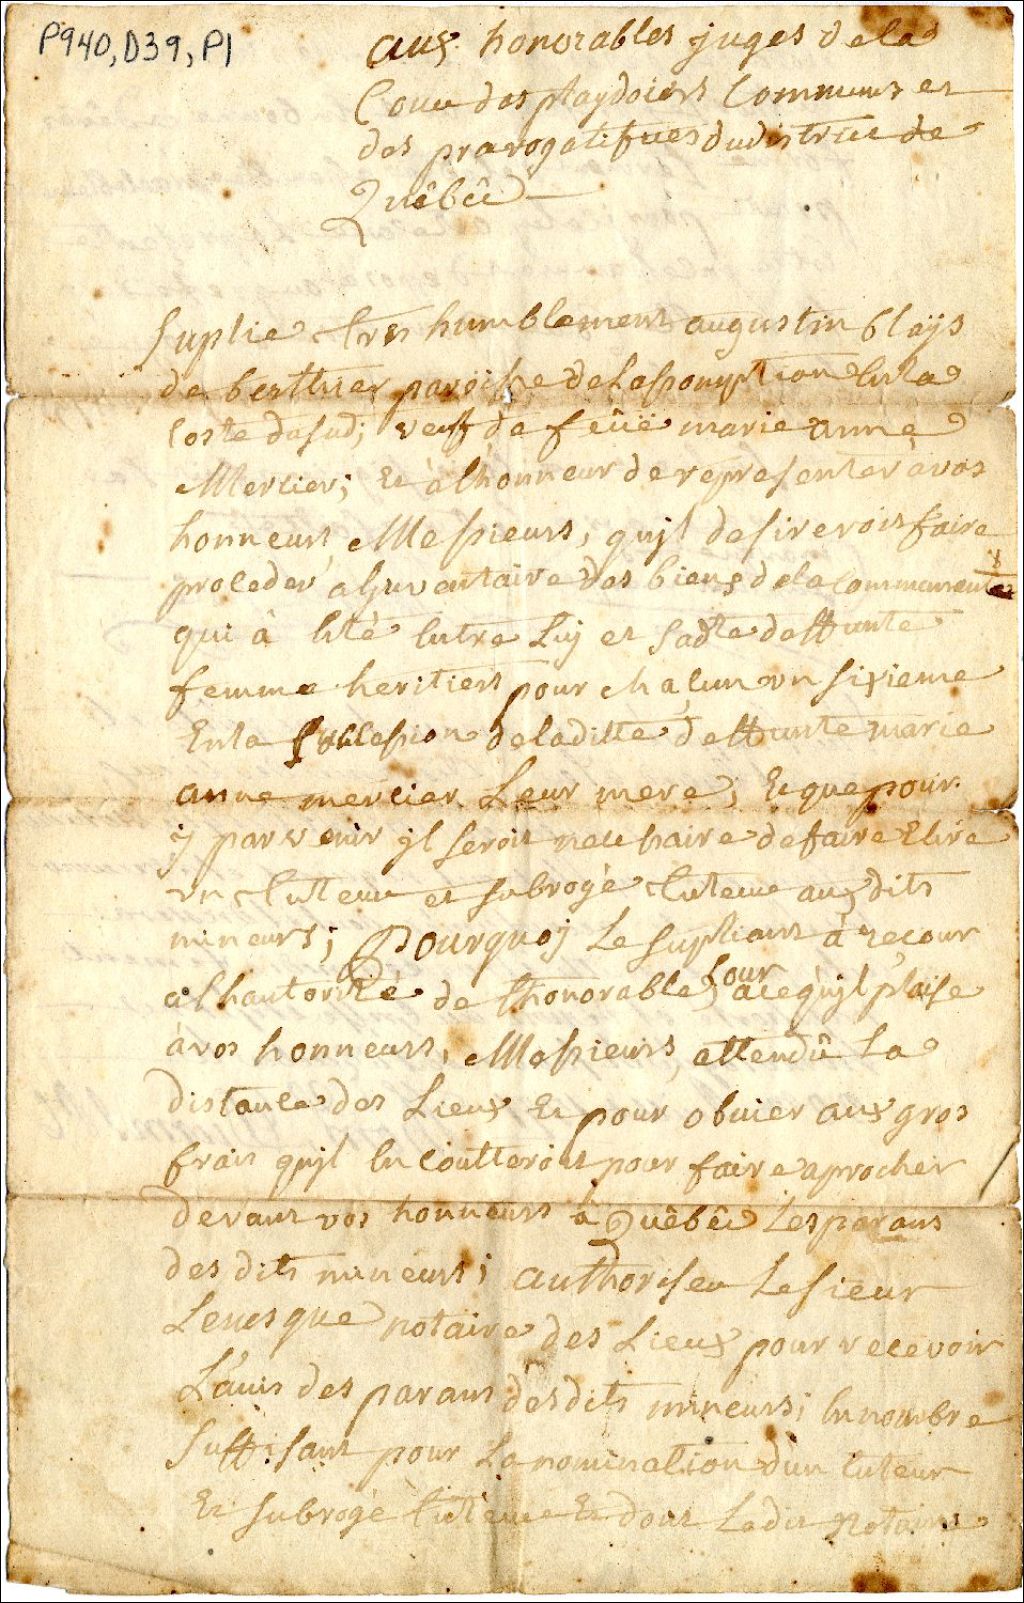 P940, D39, P1
aux honorables juges dela
Cour des playdoiers Communs et
des prarogatifves dudistrict de
Quêbêc
Suplie tres humblement augustin blaÿs
de berthier paroisse delassomption enla
Coste dusud; veuf de feüe marie anne
Mercier; Et à lhonneur derepresenter àvos
honneurs Messieurs, quÿl desireroit faire
proceder alinventaire des biens dela Communauté
qui à Eté Entre Luy et sadte deffunte
femme heritiers pour chacun un sixieme
Enla succession deladitte deffunte marie
anne mercier Leur mere, Et quepour
ÿ parvenir ÿl seroit necessaire defaire Elire
un tuteur et subrogé tuteur aux dits
mineurs; Pourquoy Le supliant à recour
alhautorité de lhonorable Cour acequÿl plaise
àvos honneurs, Messieurs, attendû La
distance des Lieux Et pour obuier aux gros
frais quÿl En coutteroit pour faire aprocher
devant vos honneurs à Quêbêc Lesparans
des dits mineurs; authoriser Le sieur
Levesque notaire des Lieux pour recevoir
L'auis des parans desdits mineurs; En nombre
suffisant pour La nomination dun tuteur
Et subrogé tuteur Et dont Ledit Notaire